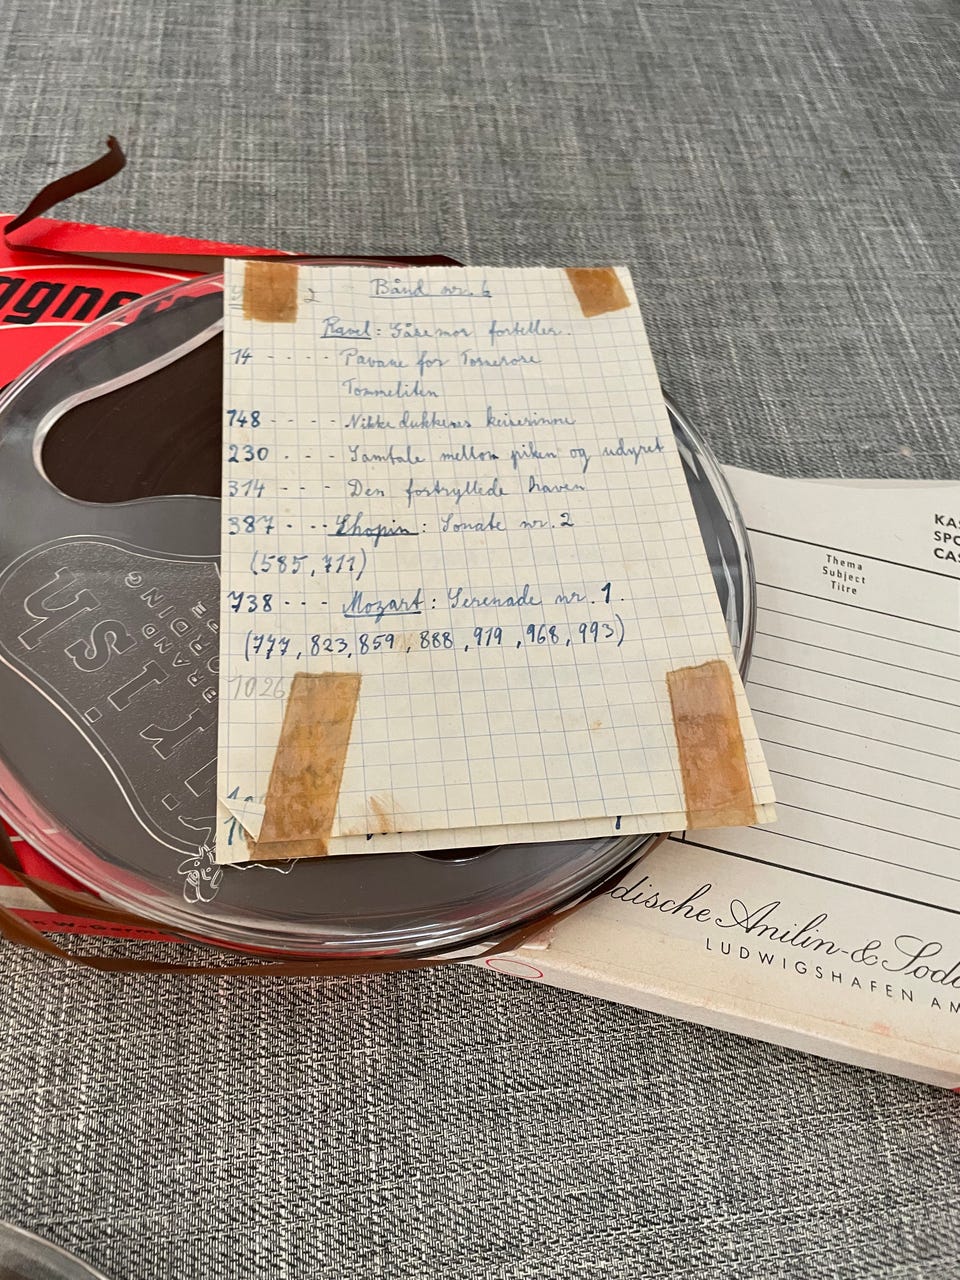 2
Bånd nr. 6
Ravel: Gåsemor forteller.
14 - - - - Pavane for Tornerose
Tommeliten
148 - - - - Nikkedukkenes keiserinne
230 - - - Samtale mellom piken og udyret
314 - - - Den fortryllede haven
387 - - - Chopin: Sonate nr. 2
(585, 711)
738 - - - Mozart: Serenade nr. 1.
(777, 823, 859, 888, 919, 968, 993)
1026
Thema
Subject
Titre
KAS
SPO
CAS
dische Anilin- & Soda
LUDWIGSHAFEN AM
W.-Germ